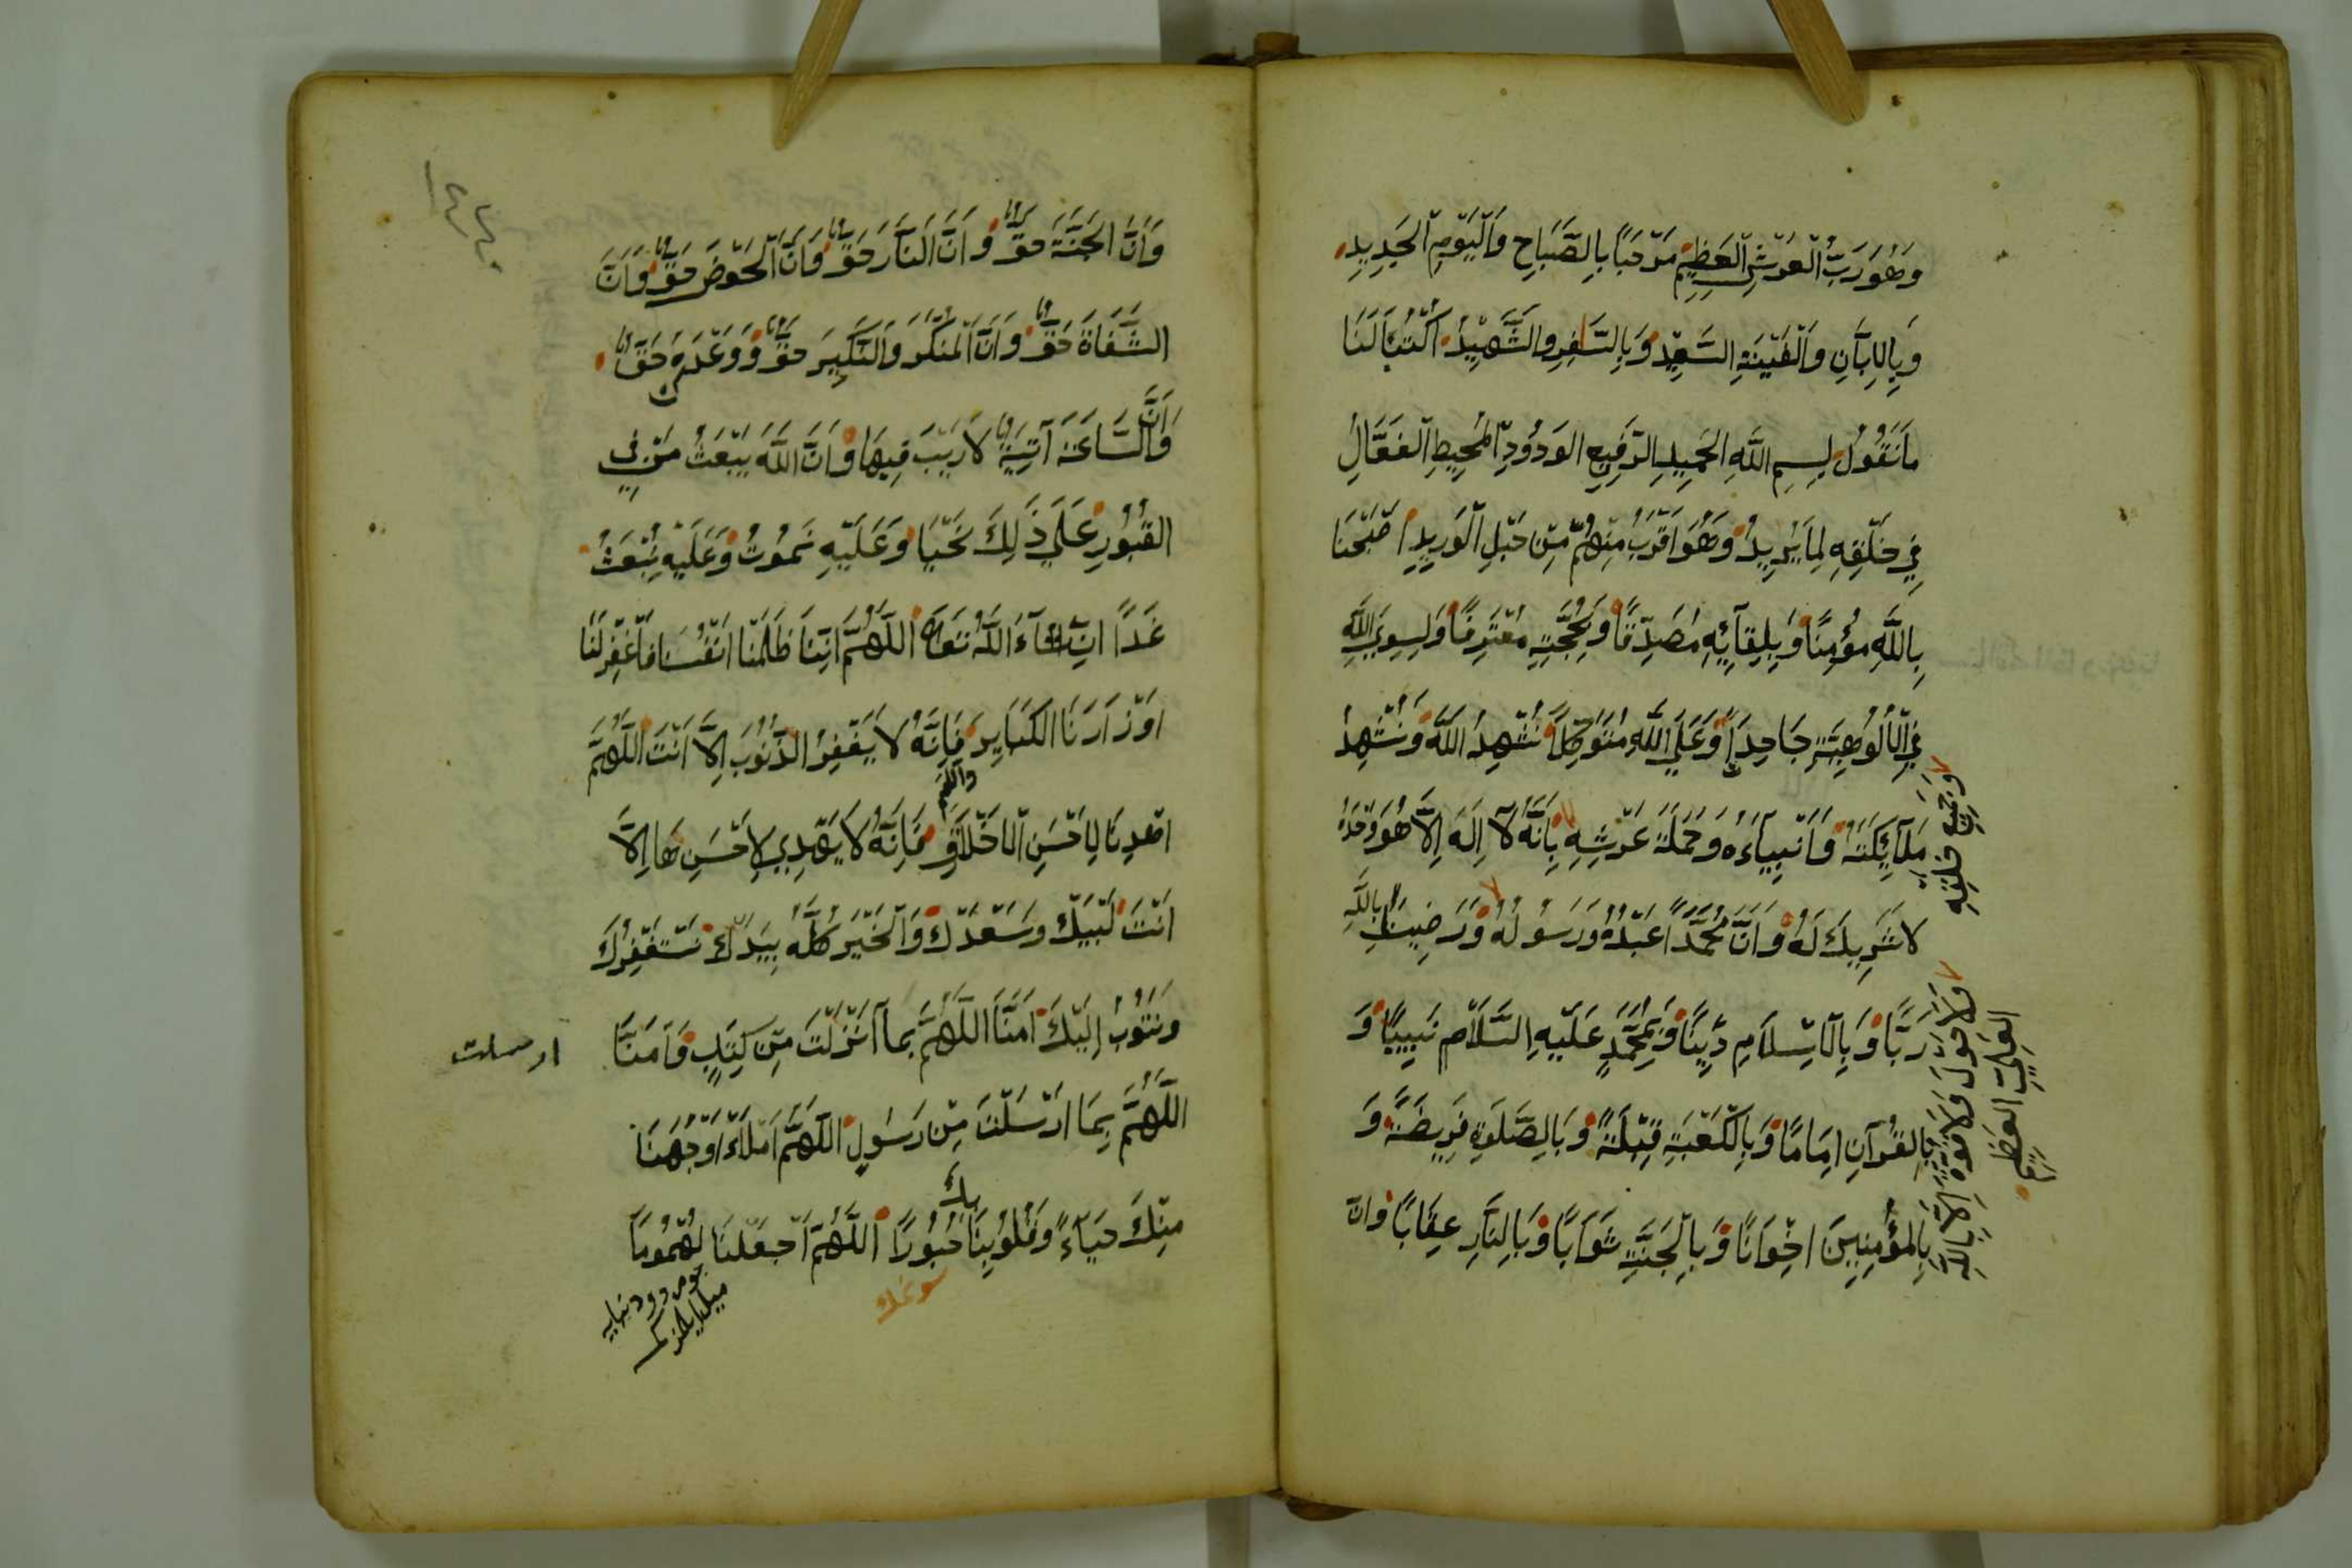 وَهُوَ رَبُّ الْعَرْشِ الْعَظِيمِ مَرْحَبًا بِالصَّبَاحِ وَالْيَوْمِ الْجَدِيدِ
وَبِالْاِبَّانِ وَالْفَيْنَةِ السَّعِيدِ وَبِالسَّافِرِ وَالشَّهِيدِ اُكْتُبَا لَنَا
مَا نَقُولُ بِسْمِ اللَّهِ الْحَمِيدِ الرَّفِيعِ الْوَدُودِ الْمُحِيطِ الْفَعَّالِ
فِي خَلْقِهِ لِمَا يُرِيدُ وَهُوَ اَقْرَبُ مِنْهُمْ مِنْ حَبْلِ الْوَرِيدِ اَصْبَحْنَا
بِاللَّهِ مُؤْمِنًا وَبِلِقَآئِهِ مُصَدِّقًا وَبِحُجَّتِهِ مُعْتَرِفًا وَلِسِوَى اللَّهِ
فِي الْاُلُوهِيَّةِ جَاحِدًا وَعَلَى اللَّهِ مُتَوَكِّلًا نُشْهِدُ اللَّهَ وَنُشْهِدُ
مَلَآئِكَتَهُ وَاَنْبِيَآءَهُ وَحَمَلَةَ عَرْشِهِ بِاَنَّهُ لَآ اِلَهَ اِلَّا هُوَ وَحْدَهُ
وَجَمِيعِ خَلْقِهِ
لَا شَرِيكَ لَهُ وَاَنَّ مُحَمَّدًا عَبْدُهُ وَرَسُولُهُ وَرَضِينَا بِاللَّهِ
وَلَا حَوْلَ وَلَا قُوَّةَ اِلَّا بِاللَّهِ
الْعَلِيِّ الْعَظِيمِ
رَبًّا وَبِالْاِسْلَامِ دِينًا وَبِمُحَمَّدٍ عَلَيْهِ السَّلَامِ نَبِيًّا وَ
بِالْقُرْآنِ اِمَامًا وَبِالْكَعْبَةِ قِبْلَةً وَبِالصَّلَوةِ فَرِيضَةً وَ
بِالْمُؤْمِنِينَ اِخْوَانًا وَبِالْجَنَّةِ ثَوَابًا وَبِالنَّارِ عِقَابًا وَاَنَّ
وَاَنَّ الْجَنَّةَ حَقٌّ وَاَنَّ النَّارَ حَقٌّ وَاَنَّ الْحَوْضَ حَقٌّ وَاَنَّ
الشَّفَاةَ حَقٌّ وَاَنَّ الْمُنْكَرَ وَالنَّكِيرَ حَقٌّ وَوَعْدَهُ حَقٌّ
وَاَنَّ السَّاعَةَ آتِيَةٌ لَا رَيْبَ فِيهَا وَاَنَّ اللَّهَ يَبْعَثُ مَنْ فِي
الْقُبُورِ عَلَى ذَلِكَ نَحْيَا وَعَلَيْهِ نَمُوتُ وَعَلَيْهِ نُبْعَثُ
غَدًا اِنْ شَآءَ اللَّهُ تَعَالَى اَللَّهُمَّ اِنَّنَا ظَلَمْنَا اَنْفُسَنَا فَاغْفِرْ لَنَا
اَوْزَارَنَا الْكَبَايِرَ فَاِنَّهُ لَا يَغْفِرُ الذُّنُوبَ اِلَّا اَنْتَ اَللَّهُمَّ
اهْدِنَا لِاَحْسَنِ الْاَخْلَاقِ فَاِنَّهُ لَا يَهْدِي لِاَحْسَنِهَا اِلَّا
اَنْتَ لَبَّيْكَ وَسَعْدَكَ وَالْخَيْرُ كُلُّهُ بِيَدَكَ نَسْتَغْفِرُكَ
وَنَتُوبُ اِلَيْكَ آمَنَّا اَللَّهُمَّ بِمَا اَنْزَلْتَ مِنْ كِتَبٍ وَآمَنَّا
ارسلت
اَللَّهُمَّ بِمَا اَرْسَلْتَ مِنْ رَسُولٍ اَللَّهُمَّ اَمْلَاْ اَوْجُهَنَا
مِنْكَ حَيَآءً وَقُلُوبَنَا بك حُبُورًا اَللَّهُمَّ اَجْعَلْنَا لُهْمُومًا